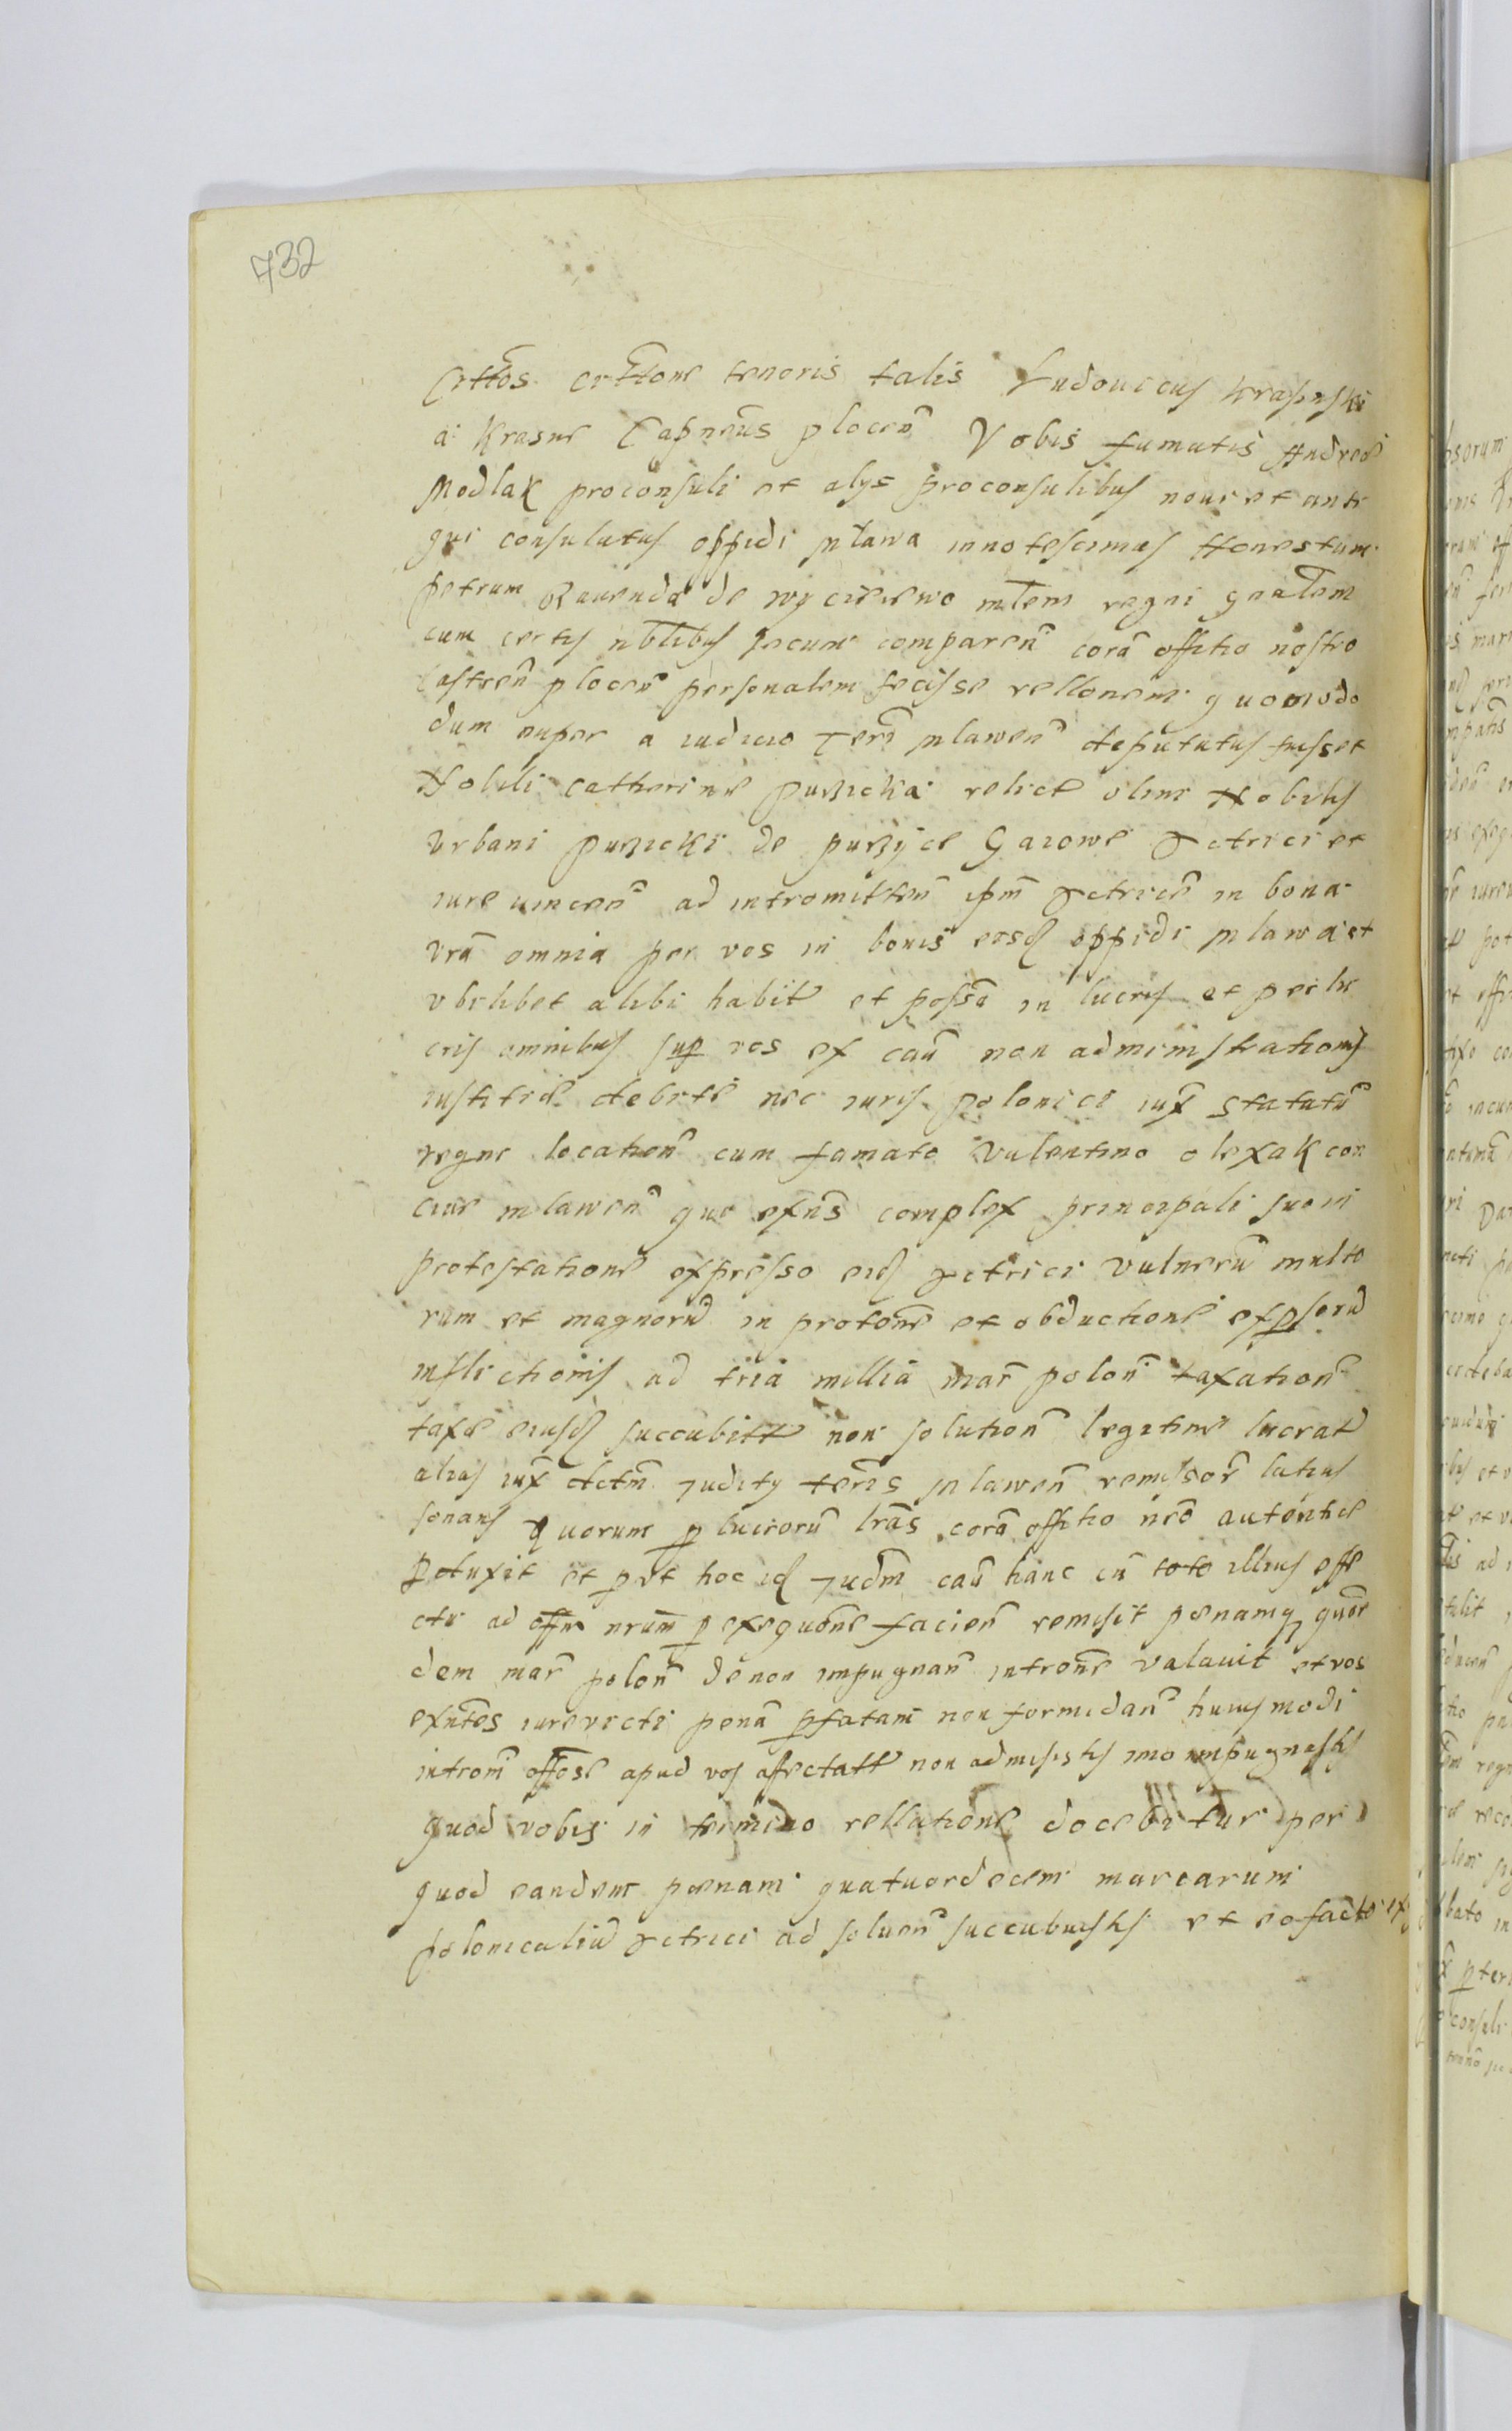 732
Crttõs crttone tenoris talis Ludouicus Krasinski
a Krasne Capneus plocen Vobis famatis Andreæ
Modlak proconsuli et alys proconsulibus noui et anti
qui consulatus oppidi Mlawa innotescimus Honestum
petrum Rauenda de wyczieiewo mlem regni gnalem
cum certis nblibus secum comparen corã offitio nostro
Castren plocen personalem fecisse rellonem quomodo
dum nuper a iudicio Terri mlawen deputatus fuisset
Nobili Catherine puszicka relicte olim Nobilis
Vrbani puszicki de puszyce Gaiowe actrici et
iure uincen ad intromitten ipm actricẽ in bona
vrã omnia per vos in bonis eisdẽ oppidi mlawa et
vbilibet alibi habit et possa in lucris et perlu
cris omnibus sup vos ex cau non administrationis
iustitiæ debitæ nec iuris polonici iux statutũ
regni location cum famato Valentino olexak con
ciue mlawen quo exns complex principali suo in
protestatione expresso eid actrici vulnerũ multo
rum et magnorũ in protone et obductione expssorũ
inflictionis ad tria millia mar polon taxation
taxæ eiusd succubitt non solution legitime lucrat
alias iux dctm Judity terris mlawen remissor latius
sonans quorum p lucrorũ lrãs corã offitio nrõ autentice
Pduxit et put hoc id Judm cau hanc cũ toto illius effe
ctu ad offm nrum p exequone facien remisit pœnamq quor
dem mar polon de non impugnan introne valauit et vos
exntes iurevicti penã pfatam non formidan huiusmodi
introm offose apud vos affectatt non admisistis imo impugnastis
quod vobis in termino rellatione docebitur per
quod eandem pœnam quatuordecem marcarum
polonicaliũ actrici ad soluen succubuistis et eo facto ex